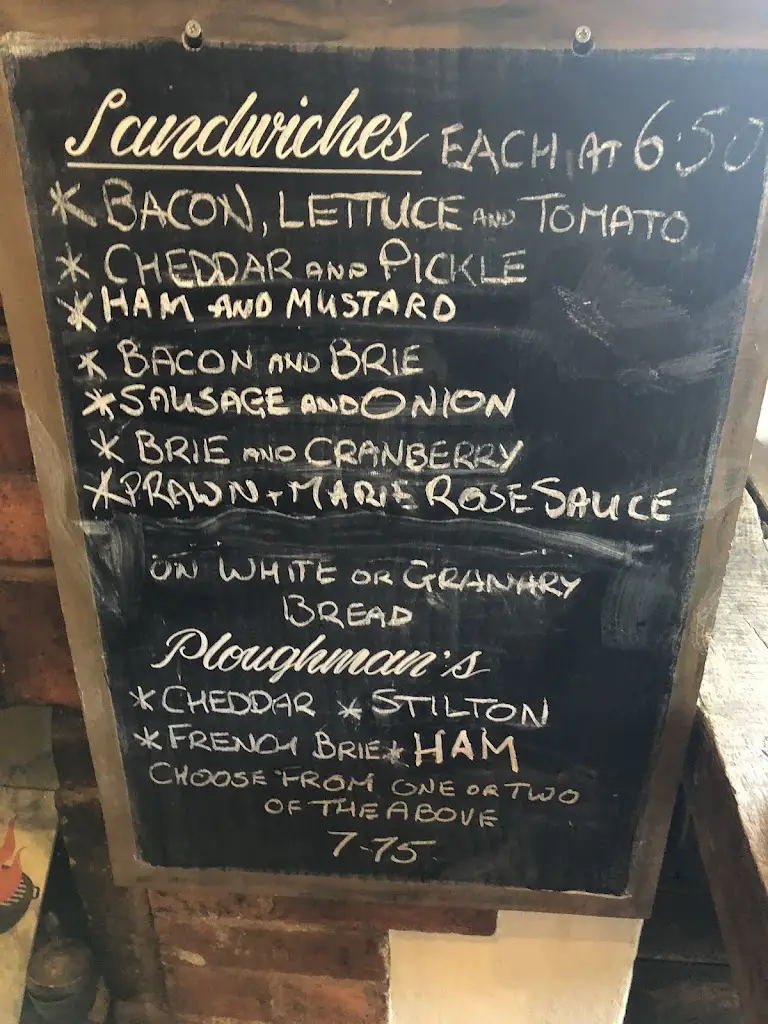 Sandwiches EACH AT 6.50
* BACON, LETTUCE AND TOMATO
* CHEDDAR AND PICKLE
* HAM AND MUSTARD
* BACON AND BRIE
* SAUSAGE AND ONION
* BRIE AND CRANBERRY
* PRAWN + MARIE ROSE SAUCE
ON WHITE OR GRANARY
BREAD
Ploughman's
* CHEDDAR * STILTON
* FRENCH BRIE * HAM
CHOOSE FROM ONE OR TWO
OF THE ABOVE
7-75